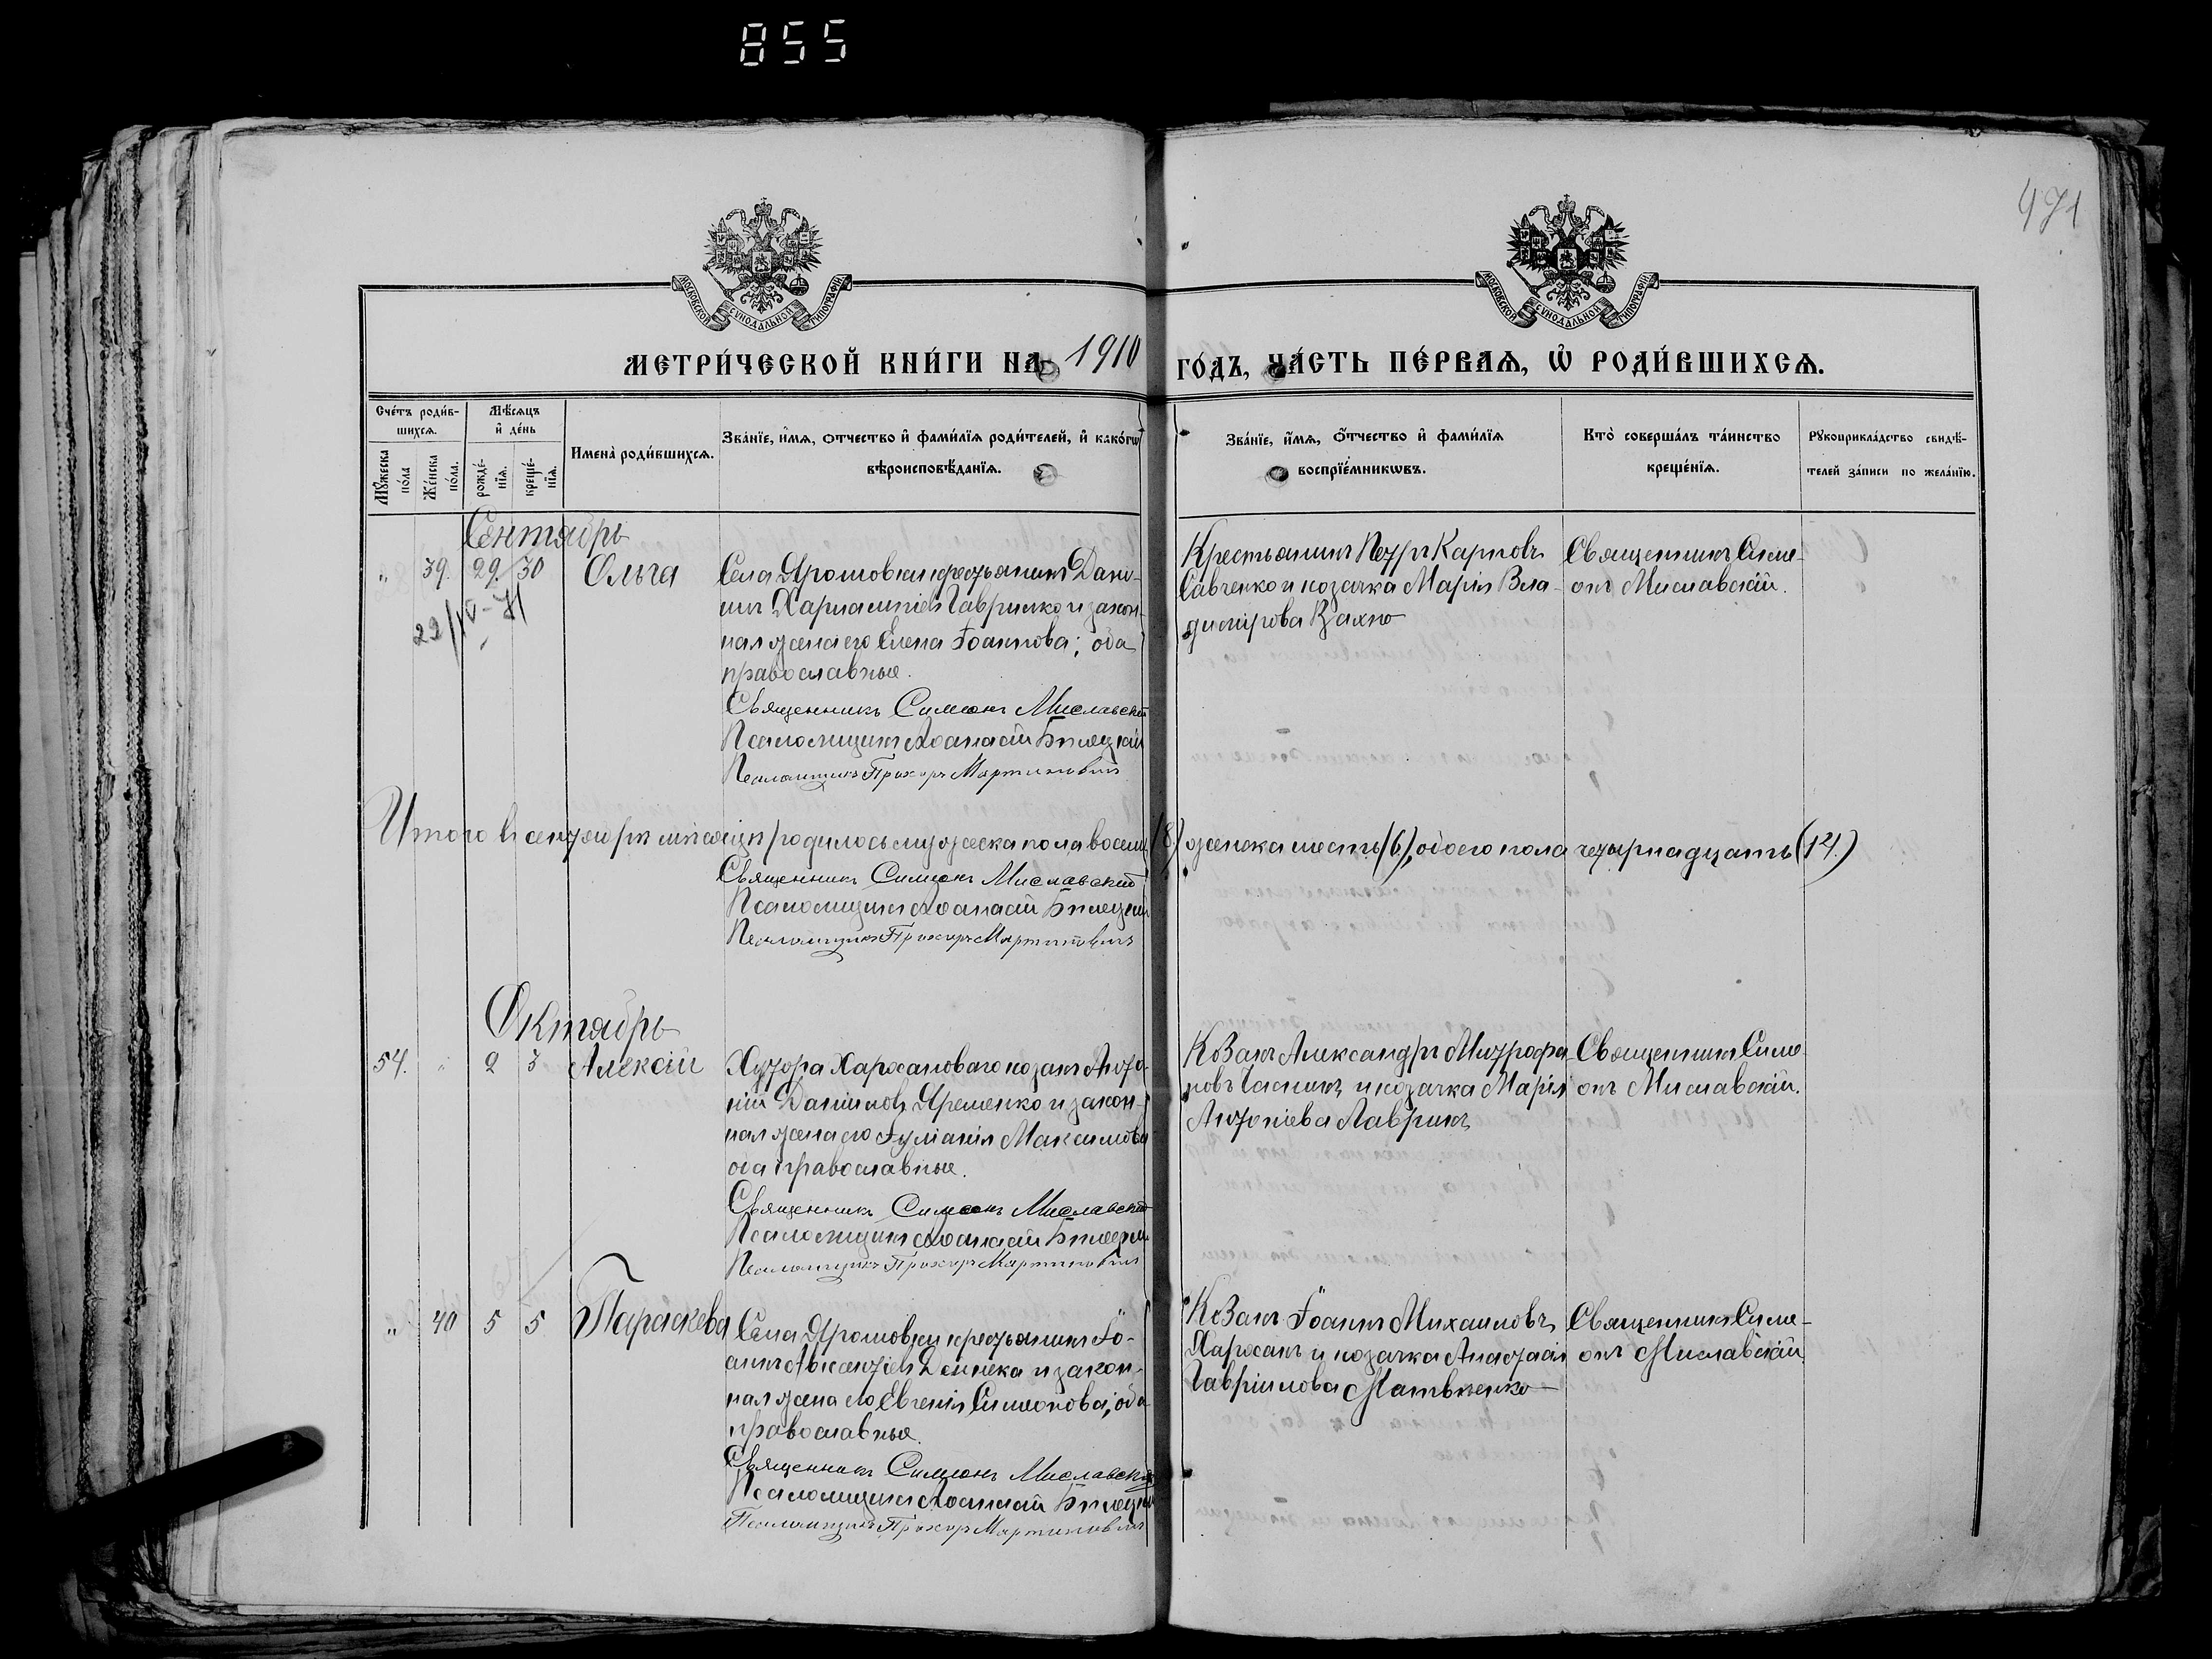 855
471
МОСКОВСКОЙ СѴНОДАЛЬНОЙ ТИПОГРАФІИ
МОСКОВСКОЙ СѴНОДАЛЬНОЙ ТИПОГРАФІИ
МЕТРИ́ЧЕСКОЙ КНИ́ГИ НА 1910 ГО́ДЪ, ЧА́СТЬ ПЕ́РВАѦ, Ѡ РОДИ́ВШИХСѦ.
Сче́тъ роди́в-
шихсѧ.
Мꙋжеска
по́ла
Же́нска
по́ла.
Мѣ́сѧцъ
и де́нь
рожде́-
нїѧ.
креще́-
нїѧ.
Имена̀ роди́вшихсѧ.
Зва́нїе, и́мѧ, отчество и фами́лїѧ роди́телей, и како́гѡ
вѣроисповѣ́данїѧ.
Зва́нїе, и́мѧ, о́тчество и фами́лїѧ
воспрїе́мникѡвъ.
Кто̀ соверша́лъ та́инство
креще́нїѧ.
Рꙋкоприкла́дство свидѣ́-
телей за́писи по жела́нїю.
Сентябрь
„ 39. 29. 30 Ольга
29/IV-71
Села Ярошовки крестьянинъ Дани-
илъ Харлампіевъ Гаврилко и закон-
ная жена его Елена Іоаннова; оба
православные.
Священникъ Симеонъ Миславскій
Псаломщикъ Аѳанасій Билецкій
Псаломщикъ Прохоръ Мартиновичъ
Крестьянинъ Петръ Карповъ
Савченко и козачка Марія Вла-
димірова Вахно
Священникъ Симе-
онъ Миславскій.
Итого въ сентябрѣ мѣсяцѣ родилось мужеска пола восемь (8) женска шесть (6), обоего пола четырнадцать (14.)
Священникъ Симеонъ Миславскій
Псаломщикъ Аѳанасій Билецкій
Псаломщикъ Прохоръ Мартиновичъ
Октябрь
54. „ 2 3 Алексій
Хутора козакъ Анто-
ній Даніиловъ Яременко и закон-
ная жена его Іуліанія Максимова
оба православные.
Священникъ Симеонъ Миславскій
Псаломщикъ Аѳанасій Билецкій
Псаломщикъ Прохоръ Мартиновичъ
Козакъ Александръ Митрофа-
новъ и козачка Марія
Антоніева Лаврикъ
Священникъ Симе-
онъ Миславскій.
„ 40 5 5 Параскева
Села Ярошовки крестьянинъ Іо-
аннъ Авксентіевъ Дейнека и закон-
ная жена его Евгенія Симеонова; оба
православные.
Священникъ Симеонъ Миславскій
Псаломщикъ Аѳанасій Билецкій
Псаломщикъ Прохоръ Мартиновичъ
Козакъ Іоаннъ Михаиловъ
Харсанъ и козачка Анастасія
Гавріилова Матвѣенко
Священникъ Симе-
онъ Миславскій.